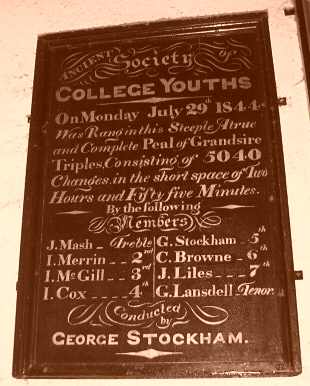 ANCIENT Society OF
COLLEGE YOUTHS
On Monday July 29th 1844
Was Rang in this Steeple A true
and Complete Peal of Grandsire
Triples, Consisting of 5040
Changes, in the short space of Two
Hours and Fifty five Minutes.
By the following
Members
J. Mash Treble G. Stockham 5th
I. Merrin 2nd C. Browne 6th
I. McGill 3rd J. Liles 7th
I. Cox 4th G. Lansdell Tenor.
Conducted
by
GEORGE STOCKHAM.